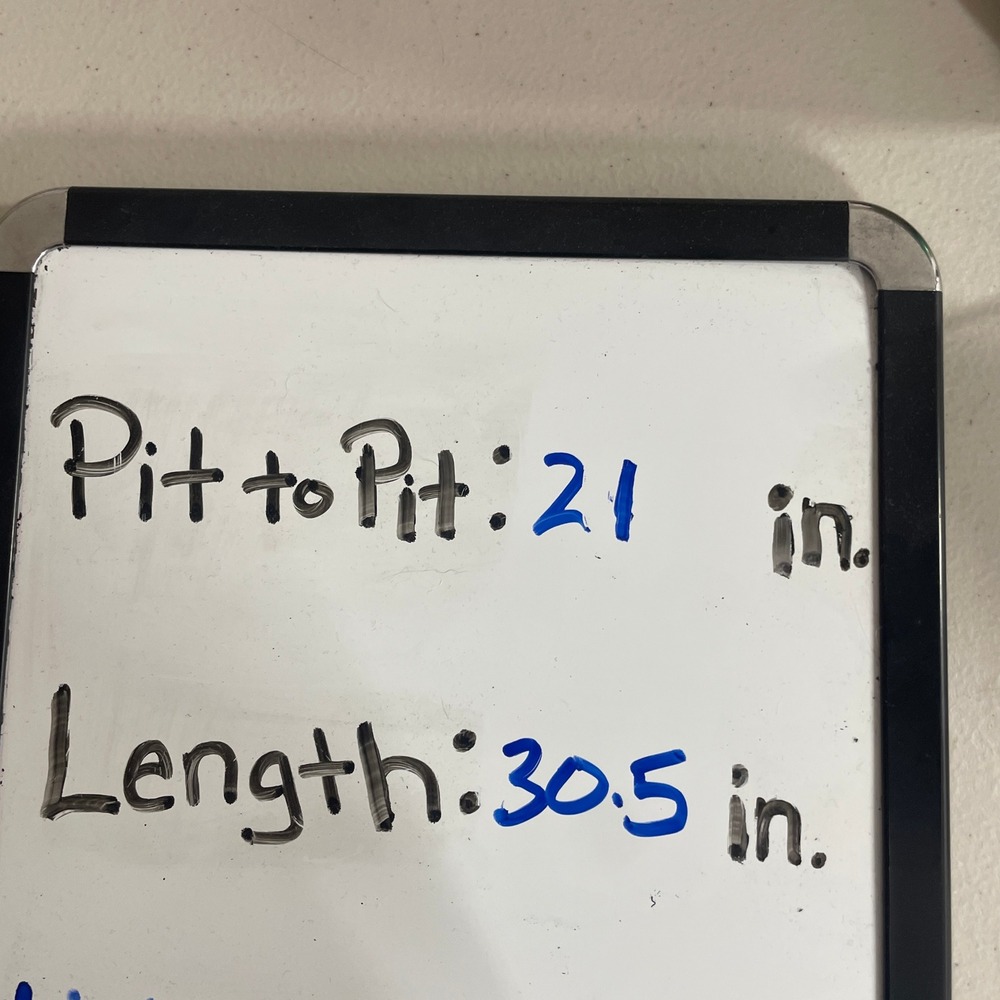 Pit to Pit: 21 in.
Length: 30.5 in.